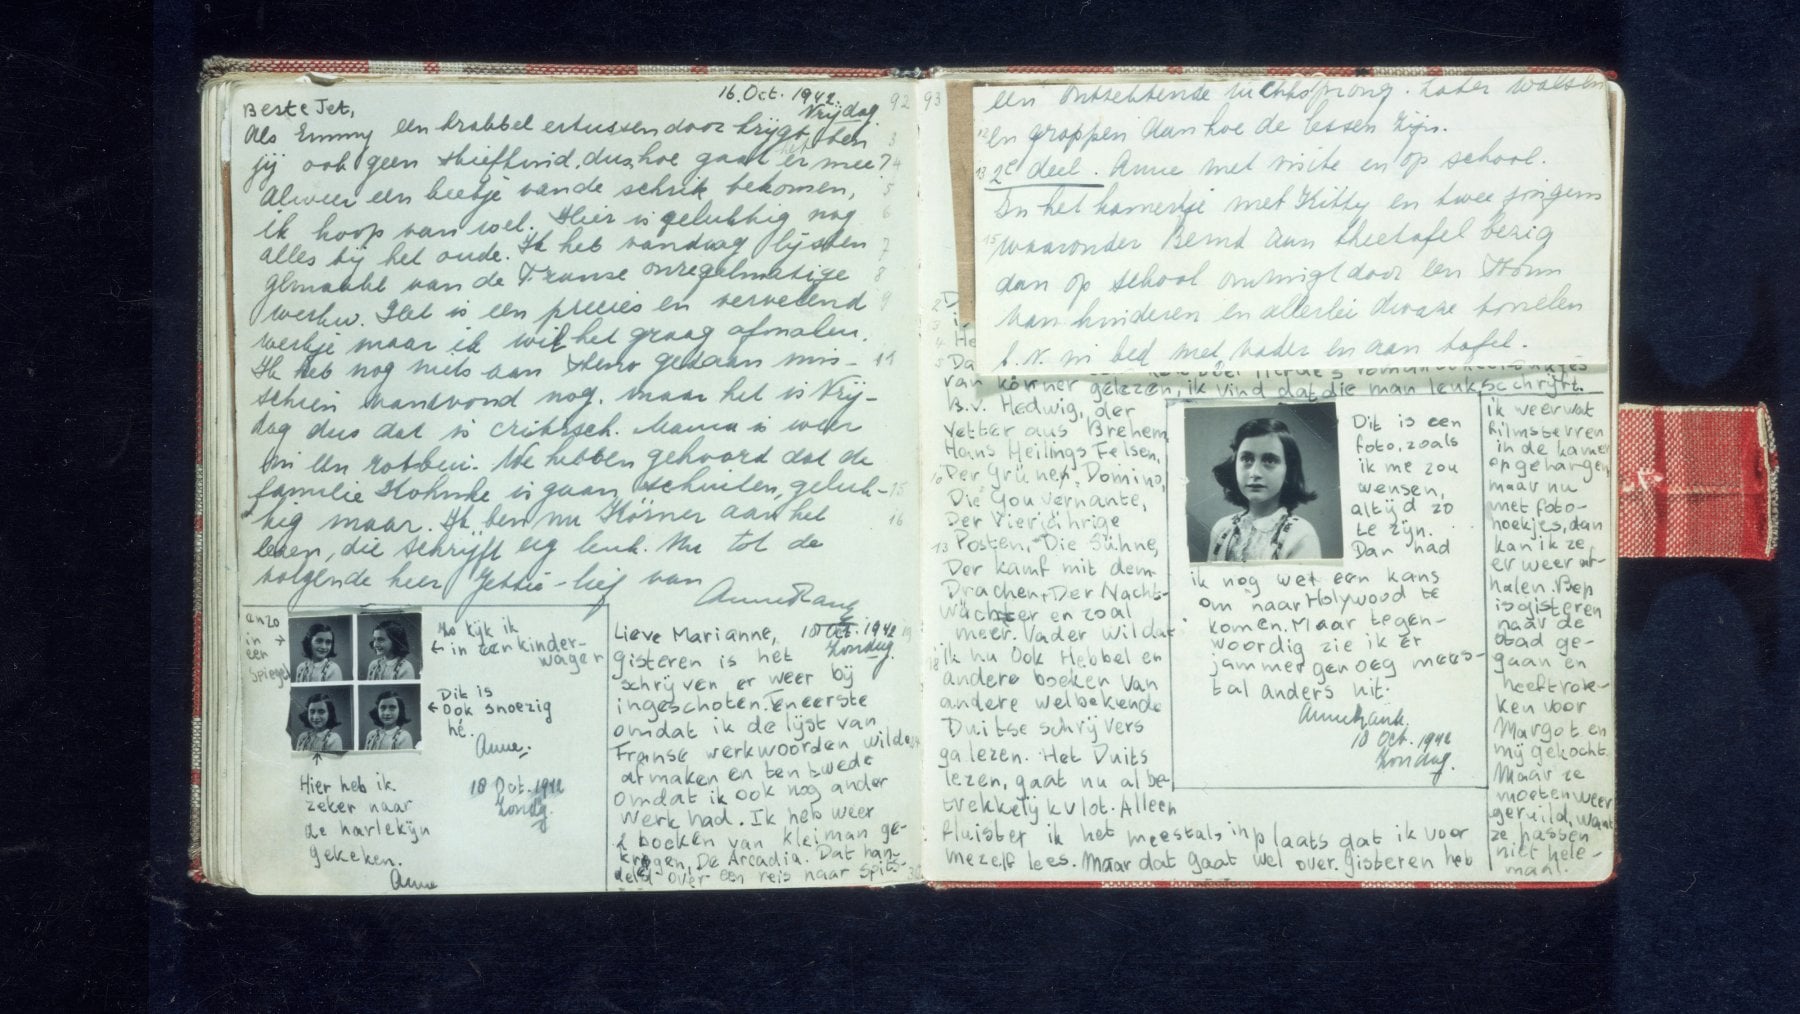 16. Oct. 1942.
Vrijdag.
92
Beste Jet,
Als Emmy een krabbel ertussendoor krijgt, ben
3
jij ook geen stiefkind, dus hoe gaat het er mee?
4
Alweer een beetje van de schrik bekomen,
5
ik hoop van wel. Hier is gelukkig nog
6
alles bij het oude. Ik heb vandaag lijsten
7
gemaakt van de Franse onregelmatige
8
werkw. Het is een precies en vervelend
9
werkje maar ik wil het graag afmaken.
Ik heb nog niets aan Steno gedaan mis-
11
schien vanavond nog. maar het is Vrij-
dag dus dat is critisch. Mama is weer
in een
We hebben gehoord dat de
familie
is gaan schuilen, geluk-
15
kig maar. Ik ben nu Körner aan het
16
lezen, die schrijft erg leuk. Nu tot de
volgende keer Jettie-lief van
Anne Frank
anzo
in →
een
spiegel
Zo kijk ik
← in een kinder-
wager
Dit is
← Ook snoezig
hé.
Anne.
Hier heb ik
zeker naar
de harlekijn
gekeken.
Anne
18 Oct. 1942
Zondag.
Lieve Marianne,
18 Oct. 1942
19
Zondag.
gisteren is het
schrijven er weer bij
ingeschoten. Eneerste
omdat ik de lijst van
Franse werkwoorden wilde
24
afmaken en ten twede
omdat ik ook nog ander
werk had. Ik heb weer
2 boeken van kleiman ge-
kregen, De Arcadia. Dat han-
delt over een reis naar Spits-
30
93
een ontzettende luchtsprong. Later walsen
12
en grappen dan hoe de lessen zijn.
13
2e deel. Anne met visite en op school.
In het kamertje met Kitty en twee jongens
15
waaronder Bernd aan theetafel bezig
dan op school omringt door een
van kinderen en allerlei dwaze tonelen
b.v. in bed met vader en aan tafel.
2
3
4
He
5
Da
van körner gelezen, ik vind dat die man leuk schrijft.
B.v. Hedwig, der
Vetter aus Brehem,
Hans Heilings Felsen,
10
Der Grünen, Domino,
Die Gouvernante,
Der Vierjährige
13
Posten, Die Sühne,
Der kamf mit dem
Drachen, Der Nacht-
wächter en zoal
meer. Vader wil dat
18
ik nu ook Hebbel en
andere boeken van
andere welbekende
Duitse schrijvers
ga lezen. Het Duits
lezen, gaat nu al be-
trekkelijk vlot. Alleen
fluister ik het meestals inplaats dat ik voor
mezelf lees. Maar dat gaat wel over. gisteren heb
Dit is een
foto, zoals
ik me zou
wensen,
altijd zo
te zijn.
Dan had
ik nog wel een kans
om naar Holywood te
komen. Maar tegen-
woordig zie ik er
jammer genoeg mees-
tal anders uit.
Anne Frank.
18 Oct. 1942
Zondag.
ik weer wat
filmsterren
in de kamer
opgehangen,
maar nu
met foto-
hoekjes, dan
kan ik ze
er weer af-
halen. Bep
is gisteren
naar de
stad ge-
gaan en
heeft rok-
ken voor
Margot en
mij gekocht.
Maar ze
moeten weer
geruild, want
ze passen
niet hele-
maal.